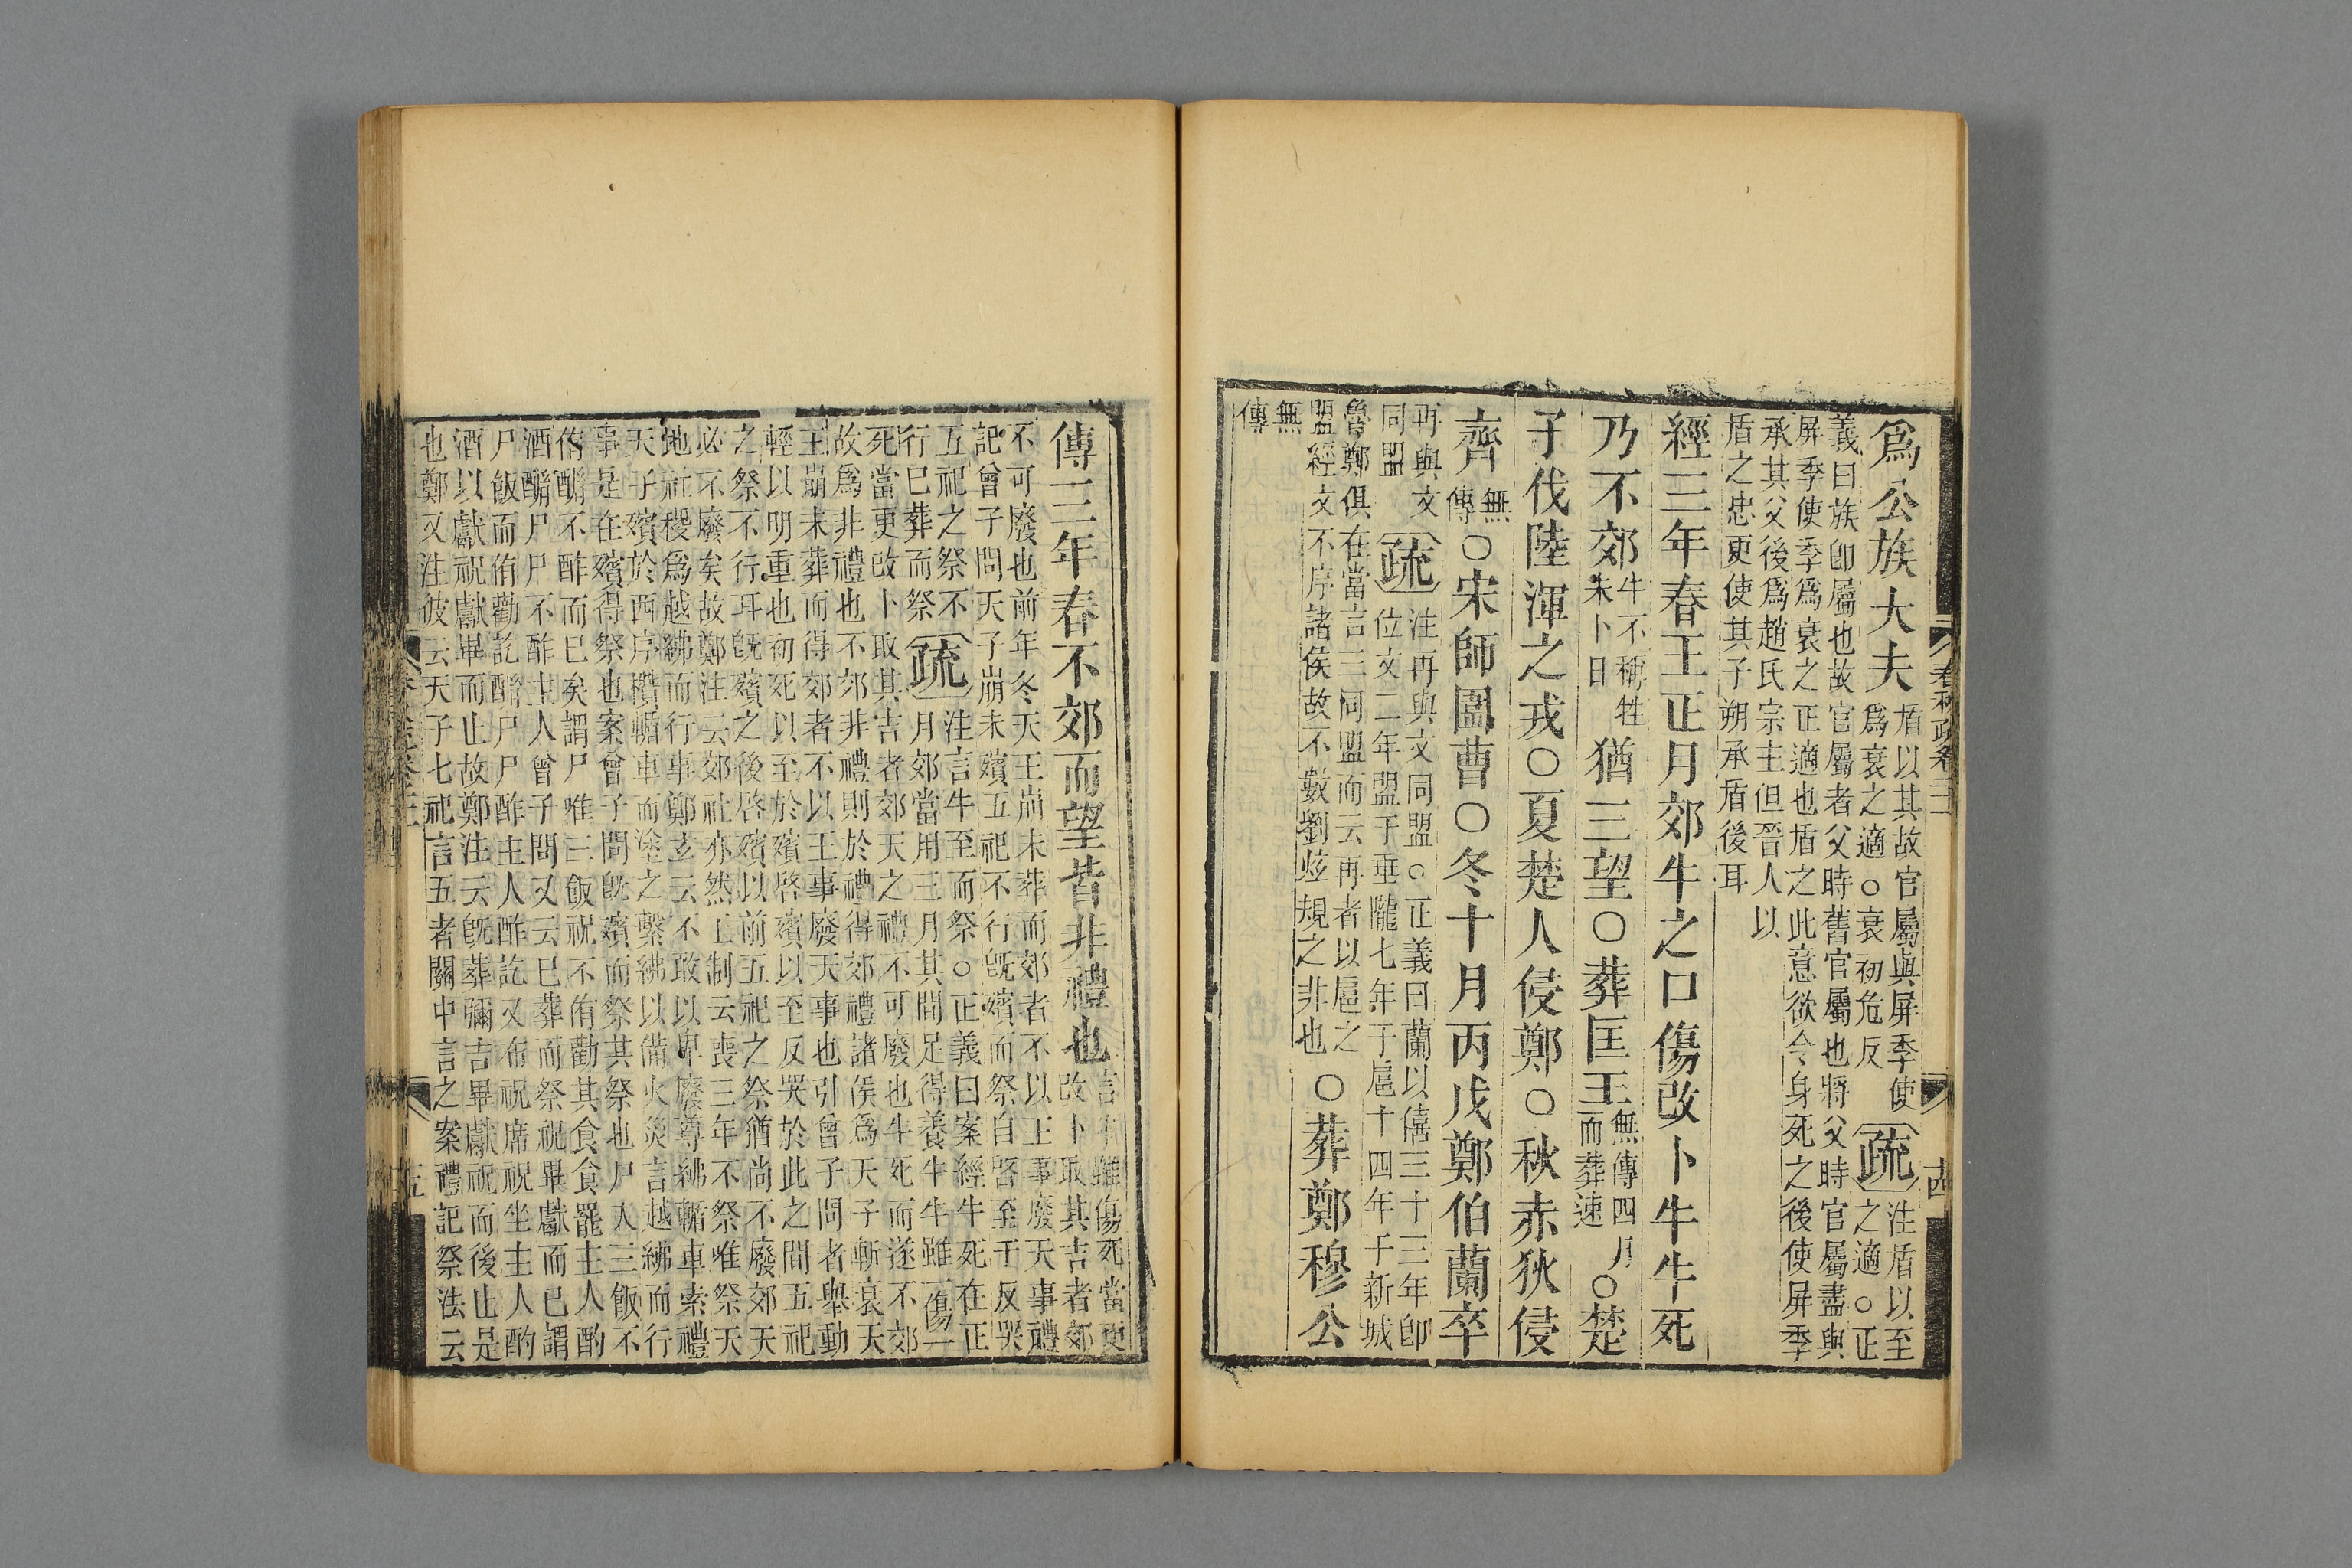 爲公族大夫盾以其故官屬與屏季使
爲衰之適○衰初危反疏注盾以至
之適○正
義曰族卽屬也故官屬者父時舊官屬也將父時官屬盡與
屏季使季爲衰之正適也盾之此意欲令身死之後使屏季
承其父後爲趙氏宗主但晉人以
盾之忠更使其子朔承盾後耳
經三年春王正月郊牛之口傷改卜牛牛死
乃不郊牛不稱牲
未卜日猶三望○葬匡王無傳四月
而葬速○楚
子伐陸渾之戎○夏楚人侵鄭○秋赤狄侵
齊無
傳○宋師圍曹○冬十月丙戌鄭伯蘭卒
再與文
同盟疏注再與文同盟○正義曰蘭以僖三十三年卽
位文二年盟于垂隴七年于扈十四年于新城
魯鄭俱在當言三同盟而云再者以扈之
盟經文不序諸侯故不數劉炫規之非也○葬鄭穆公
無
傳
春秋疏卷二十一
十四
傳三年春不郊而望皆非禮也言牛雖傷死當更
改卜取其吉者郊
不可廢也前年冬天王崩未葬而郊者不以王事廢天事禮
記曾子問天子崩未殯五祀不行旣殯而祭自啓至于反哭
五祀之祭不
行已葬而祭疏注言牛至而祭○正義曰案經牛死在正
月郊當用三月其間足得養牛牛雖一傷一
死當更改卜取其吉者郊天之禮不可廢也牛死而遂不郊
故爲非禮也不郊非禮則於禮得郊禮諸侯爲天子斬哀天
王崩未葬而得郊者不以王事廢天事也引曾子問者舉動
輕以明重也初死以至於殯啓殯以至反哭於此之間五祀
之祭不行耳旣殯之後啓殯以前五祀之祭猶尚不廢郊天
必不廢矣故鄭注云郊社亦然王制云喪三年不祭唯祭天
地社稷爲越紼而行事鄭玄云不敢以卑廢尊紼輴車索禮
天子殯於西序欑輴車而塗之繫紼以備火災言越紼而行
事是在殯得祭也案曾子問旣殯而祭其祭也尸人三飯不
侑酳不酢而已矣謂尸唯三飯祝不侑勸其食食罷主人酌
酒酳尸尸不酢主人曾子問又云已葬而祭祝畢獻而已謂
尸飯而侑勸訖酳尸尸酢主人酢訖又布祝席祝坐主人酌
酒以獻祝獻畢而止故鄭注云旣葬彌吉畢獻祝而後止是
也鄭又注彼云天子七祀言五者關中言之案禮記祭法云